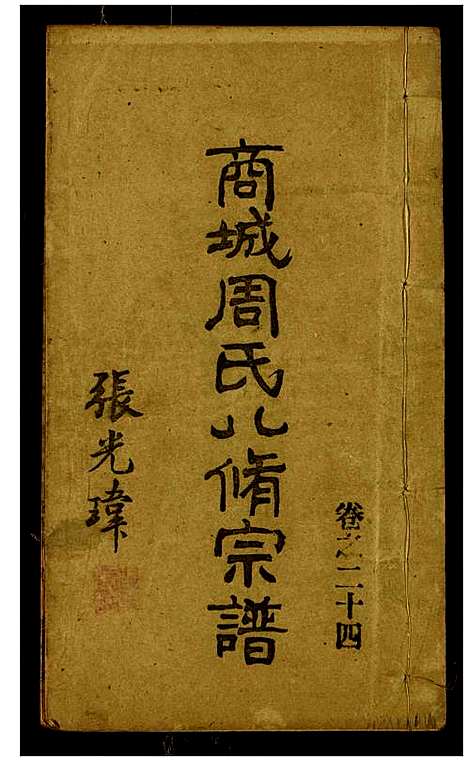 卷之二十四
商城周氏八脩宗譜
張光瑋